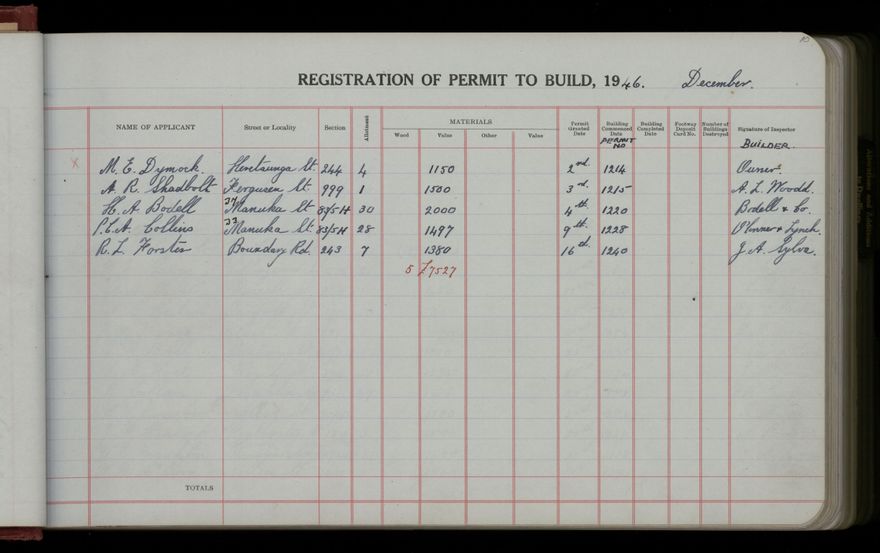 REGISTRATION OF PERMIT TO BUILD, 1946. December.
NAME OF APPLICANT Street or Locality Section Allotment MATERIALS Wood Value Other Value Permit Granted Date Building Commenced Date PERMIT NO Building Completed Date Footway Deposit Card No. Number of Buildings Destroyed Signature of Inspector BUILDER.
X M. E. Dymock. Heretaunga St. 244 4 1150 2nd. 1214 Owner.
A. R. Shadbolt Ferguson St. 999 1 1500 3rd. 1215 A. L. Woodd.
H. A. Bodell 37 Manuka St. 83/5H 30 2000 4th. 1220 Bodell & Co.
P.C.A. Collins 33 Manuka St. 83/5H 28 1497 9th. 1228 O'Connor & Lynch.
R. L. Forster Boundary Rd. 243 7 1380 16th. 1240 J. A. Sylva.
5 £7527
TOTALS